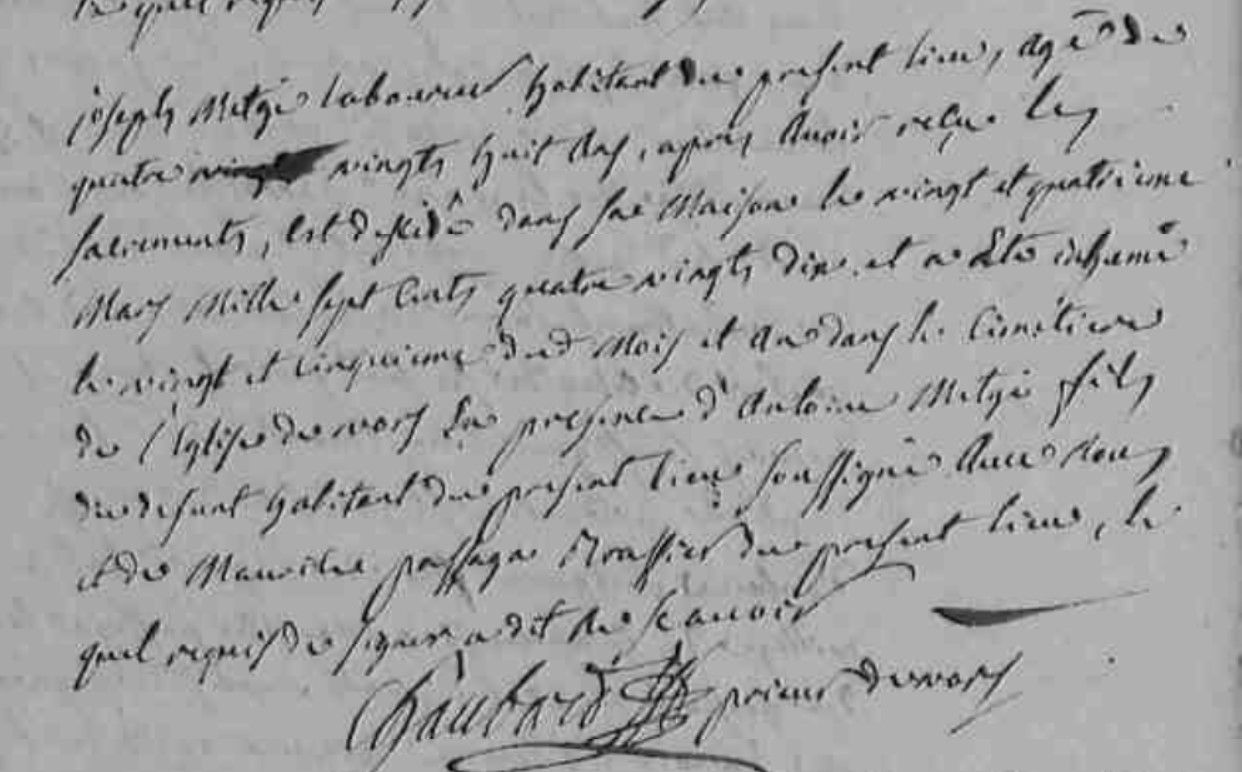 joseph Metge laboureur habitant du present lieu, agé de
quatre vingts huit ans, apres avoir reçu les
sacrements, est décédé dans sa maison le vingt et quatrieme
Mars Mille sept cents quatre vingts dix. et a été inhumé
le vingt et cinquieme dud mois et an dans le Cimétiere
de l'Eglise de vors En presence d'Antoine Metge fils
du defunt habitant du present lieu soussigné avec nous
et de passaga du present lieu, le
quel requis de signer a dit ne scavoir
Chaubard prieur de vors